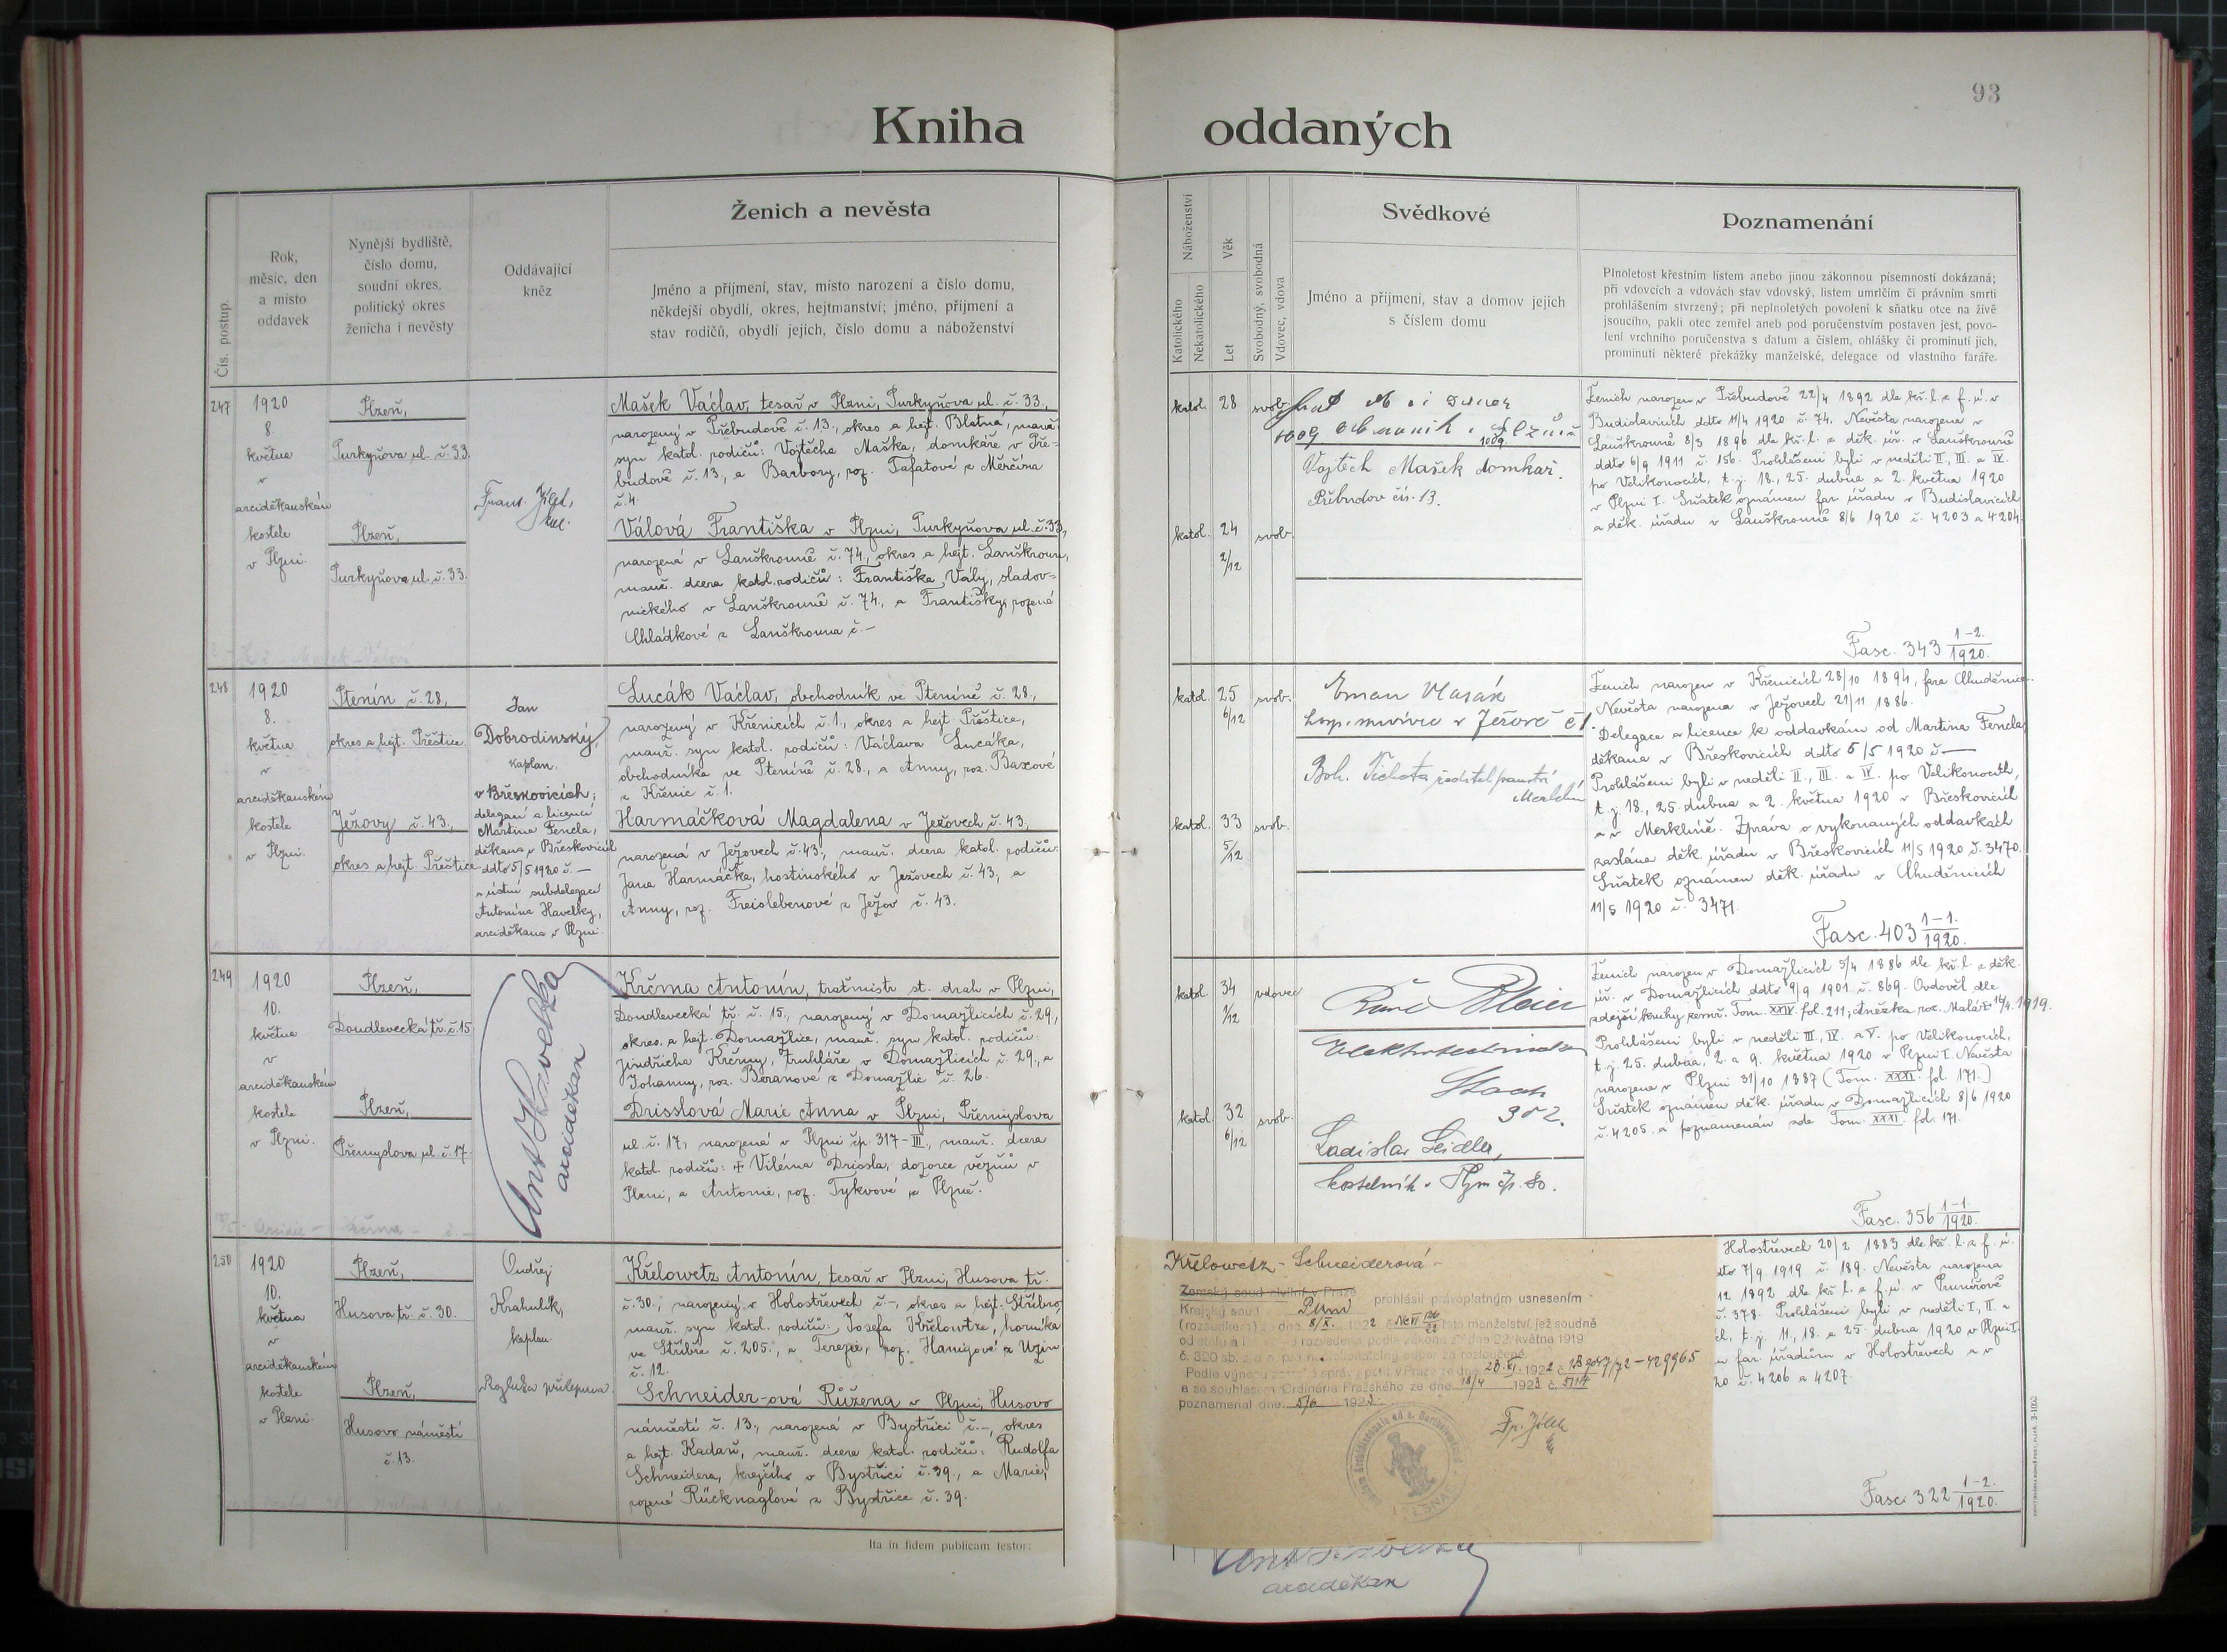 93
Kniha oddaných
Čís. postup.
Rok,
měsíc, den
a místo
oddavek
Nynější bydliště,
číslo domu,
soudní okres,
politický okres
ženicha i nevěsty
Oddávající
kněz
Ženich a nevěsta
Jméno a příjmení, stav, místo narození a číslo domu,
někdejší obydlí, okres, hejtmanství; jméno, příjmení a
stav rodičů, obydlí jejich, číslo domu a náboženství
Náboženství
Katolického
Nekatolického
Věk
Let
Svobodný, svobodná
Vdovec, vdova
Svědkové
Jméno a příjmení, stav a domov jejich
s číslem domu
Poznamenání
Plnoletost křestním listem anebo jinou zákonnou písemností dokázaná;
při vdovcích a vdovách stav vdovský, listem umrlčím či právním smrti
prohlášením stvrzený; při neplnoletých povolení k sňatku otce na živě
jsoucího, pakli otec zemřel aneb pod poručenstvím postaven jest, povo-
lení vrchního poručenstva s datum a číslem, ohlášky či prominutí jich,
prominutí některé překážky manželské, delegace od vlastního faráře.
247
1920
8.
května
v
arciděkanském
kostele
v Plzni.
Plzeň,
Purkyňova ul. č. 33.
Plzeň,
Purkyňova ul. č. 33.
Frant. Jílek,
Mašek Václav, tesař v Plzni, Purkyňova ul. č. 33.,
narozený v Přebudově č. 13., okres a hejt. Blatná, manž.
syn katol. rodičů: Vojtěcha Maška, domkáře v Pře-
budově č. 13., a Barbory, roz. Tafatové z Měrčína
č. 4.
Válová Františka v Plzni, Purkyňova ul. č. 33,
narozená v Lanškrouně č. 74., okres a hejt. Lanškroun,
manž. dcera katol. rodičů: Františka Vály, sladov-
nického v Lanškrouně č. 74., a Františky, rozené
Chládkové z Lanškrouna č. –
katol. 28 svob.
katol. 24 2/12 svob.
Vojtěch Mašek domkař.
Přebudov čís. 13.
Ženich narozen v Přebudově 22/4 1892 dle kř. l. z f. ú. v
Budislavicích ddto 11/4 1920 č. 74. Nevěsta narozena v
Lanškrouně 8/3 1896 dle kř. l. z děk. úř. v Lanškrouně
ddto 6/9 1911 č. 156. Prohlášeni byli v neděli II., III. a IV.
po Velikonocích, t. j. 18., 25. dubna a 2. května 1920
v Plzni I. Sňatek oznámen far. úřadu v Budislavicích
a děk. úřadu v Lanškrouně 8/6 1920 č. 4203 a 4204.
Fasc. 343 1-2./1920.
248
1920
8.
května
v
arciděkanském
kostele
v Plzni.
Ptenín č. 28,
okres a hejt. Přeštice.
Ježovy č. 43.,
okres a hejt. Přeštice
Jan
Dobrodinský,
kaplan.
v Břeskovicích;
delegací a licencí
Martina Fencla,
děkana v Břeskovicích
ddto 5/5 1920 č. –
a ústní subdelegací
Antonína Havelky,
arciděkana v Plzni.
Lucák Václav, obchodník ve Pteníně č. 28,
narozený v Křenicích č. 1., okres a hejt. Přeštice,
manž. syn katol. rodičů: Václava Lucáka,
obchodníka ve Pteníně č. 28., a Anny, roz. Baxové
z Křenic č. 1.
Harmáčková Magdalena v Ježovech č. 43,
narozená v Ježovech č. 43., manž. dcera katol. rodičů:
Jana Harmáčka, hostinského v Ježovech č. 43, a
Anny, roz. Freislebenové z Ježov č. 43.
katol. 25 6/12 svob.
katol. 33 5/12 svob.
Eman Vlasák
v Ježově č 1.
Boh. Tichota ředitel panství
Merklín
Ženich narozen v Křenicích 28/10 1894, fara Chuděnice.
Nevěsta narozena v Ježovech 21/11 1886.
Delegace a licence k oddavkám od Martina Fencla,
děkana v Břeskovicích ddto 5/5 1920 č –
Prohlášeni byli v neděli II., III. a IV. po Velikonocích,
t. j. 18., 25. dubna a 2. května 1920 v Břeskovicích
a v Merklíně. Zpráva o vykonaných oddavkách
zaslána děk. úřadu v Břeskovicích 11/5 1920 č. 3470.
Sňatek oznámen děk. úřadu v Chuděnicích
11/5 1920 č. 3471.
Fasc. 403 1-1./1920.
249
1920
10.
května
v
arciděkanském
kostele
v Plzni.
Plzeň,
Doudlevecká tř. č. 15
Plzeň,
Přemyslova ul. č. 17.
Ant Havelka
arciděkan
Krčma Antonín, traťmistr st. drah v Plzni,
Doudlevecká tř. č. 15., narozený v Domažlicích č. 29.,
okres a hejt. Domažlice, manž. syn katol. rodičů:
Jindřicha Krčmy, truhláře v Domažlicích č. 29., a
Johanny, roz. Beranové z Domažlic č. 26.
Drisslová Marie Anna v Plzni, Přemyslova
ul. č. 17, narozená v Plzni čp. 317-III., manž. dcera
katol. rodičů: † Viléma Drissla, dozorce vězňů v
Plzni, a Antonie, roz. Tykvové z Plzně.
katol. 34 1/12 vdovec
katol. 32 6/12 svob.
Stach
302.
Ladislav Seidler,
kostelník. Plzni čp. 80.
Ženich narozen v Domažlicích 5/4 1886 dle kř. l. z děk.
úř. v Domažlicích ddto 9/9 1901 č. 869. Ovdověl dle
zdejší knihy zemř. Tom. XXIV. fol. 211, Anežka roz. Malá † 14/4 1919.
Prohlášeni byli v neděli III., IV. a V. po Velikonocích,
t. j. 25. dubna, 2. a 9. května 1920 v Plzni I. Nevěsta
narozena v Plzni 31/10 1887 (Tom. XXXI. fol. 171.)
Sňatek oznámen děk. úřadu v Domažlicích 8/6 1920
č. 4205. a poznamenán zde Tom. XXXI. fol. 171.
Fasc. 356 1-1./1920.
250
1920
10.
května
v
arciděkanském
kostele
v Plzni.
Plzeň,
Husova tř. č. 30.
Plzeň,
Husovo náměstí
č. 13.
Ondřej
Krahulík,
kaplan.
Rozluka přilepena.
Křelowetz Antonín, tesař v Plzni, Husova tř.
č. 30., narozený v Holostřevech č. –, okres a hejt. Stříbro,
manž. syn katol. rodičů: Josefa Křelowtze, horníka
ve Stříbře č. 205., a Terezie, roz. Hanigové z Uzin
č. 12.
Schneider-ová Růžena v Plzni, Husovo
náměstí č. 13., narozená v Bystřici č. –, okres
a hejt. Kadaň, manž. dcera katol. rodičů: Rudolfa
Schneidera, krejčího v Bystřici č. 39., a Marie,
rozené Rücknaglové z Bystřice č. 39.
Křelowetz – Schneiderová –
Zemský soud civilní v Praze
Krajský soud Plzni prohlásil právoplatným usnesením
(rozsudkem) z dne 8/X. 1922 toto manželství, jež soudně
podle zákona ze dne 22. května 1919
č. 320 sb. z. a n.
Podle výnosu v Praze ze dne 20.XI. 1922
a se souhlasem Ordinária Pražského ze dne 18/4 1923 č. 5114
poznamenal dne 5/6 1923.
Fr. Jílek
Holostřevech 20/2 1883 dle kř. l. z f. ú.
ddto 7/9 1919 č. 189. Nevěsta narozena
12 1892 dle kř. l. z f. ú. v Prunéřově
č. 378. Prohlášeni byli v neděli I., II. a
t. j. 11., 18. a 25. dubna 1920 v Plzni I.
far. úřadům v Holostřevech a v
20 č. 4206 a 4207.
Fasc. 322 1-2./1920.
Ita in fidem publicam testor:
Ant Havelka
arciděkan